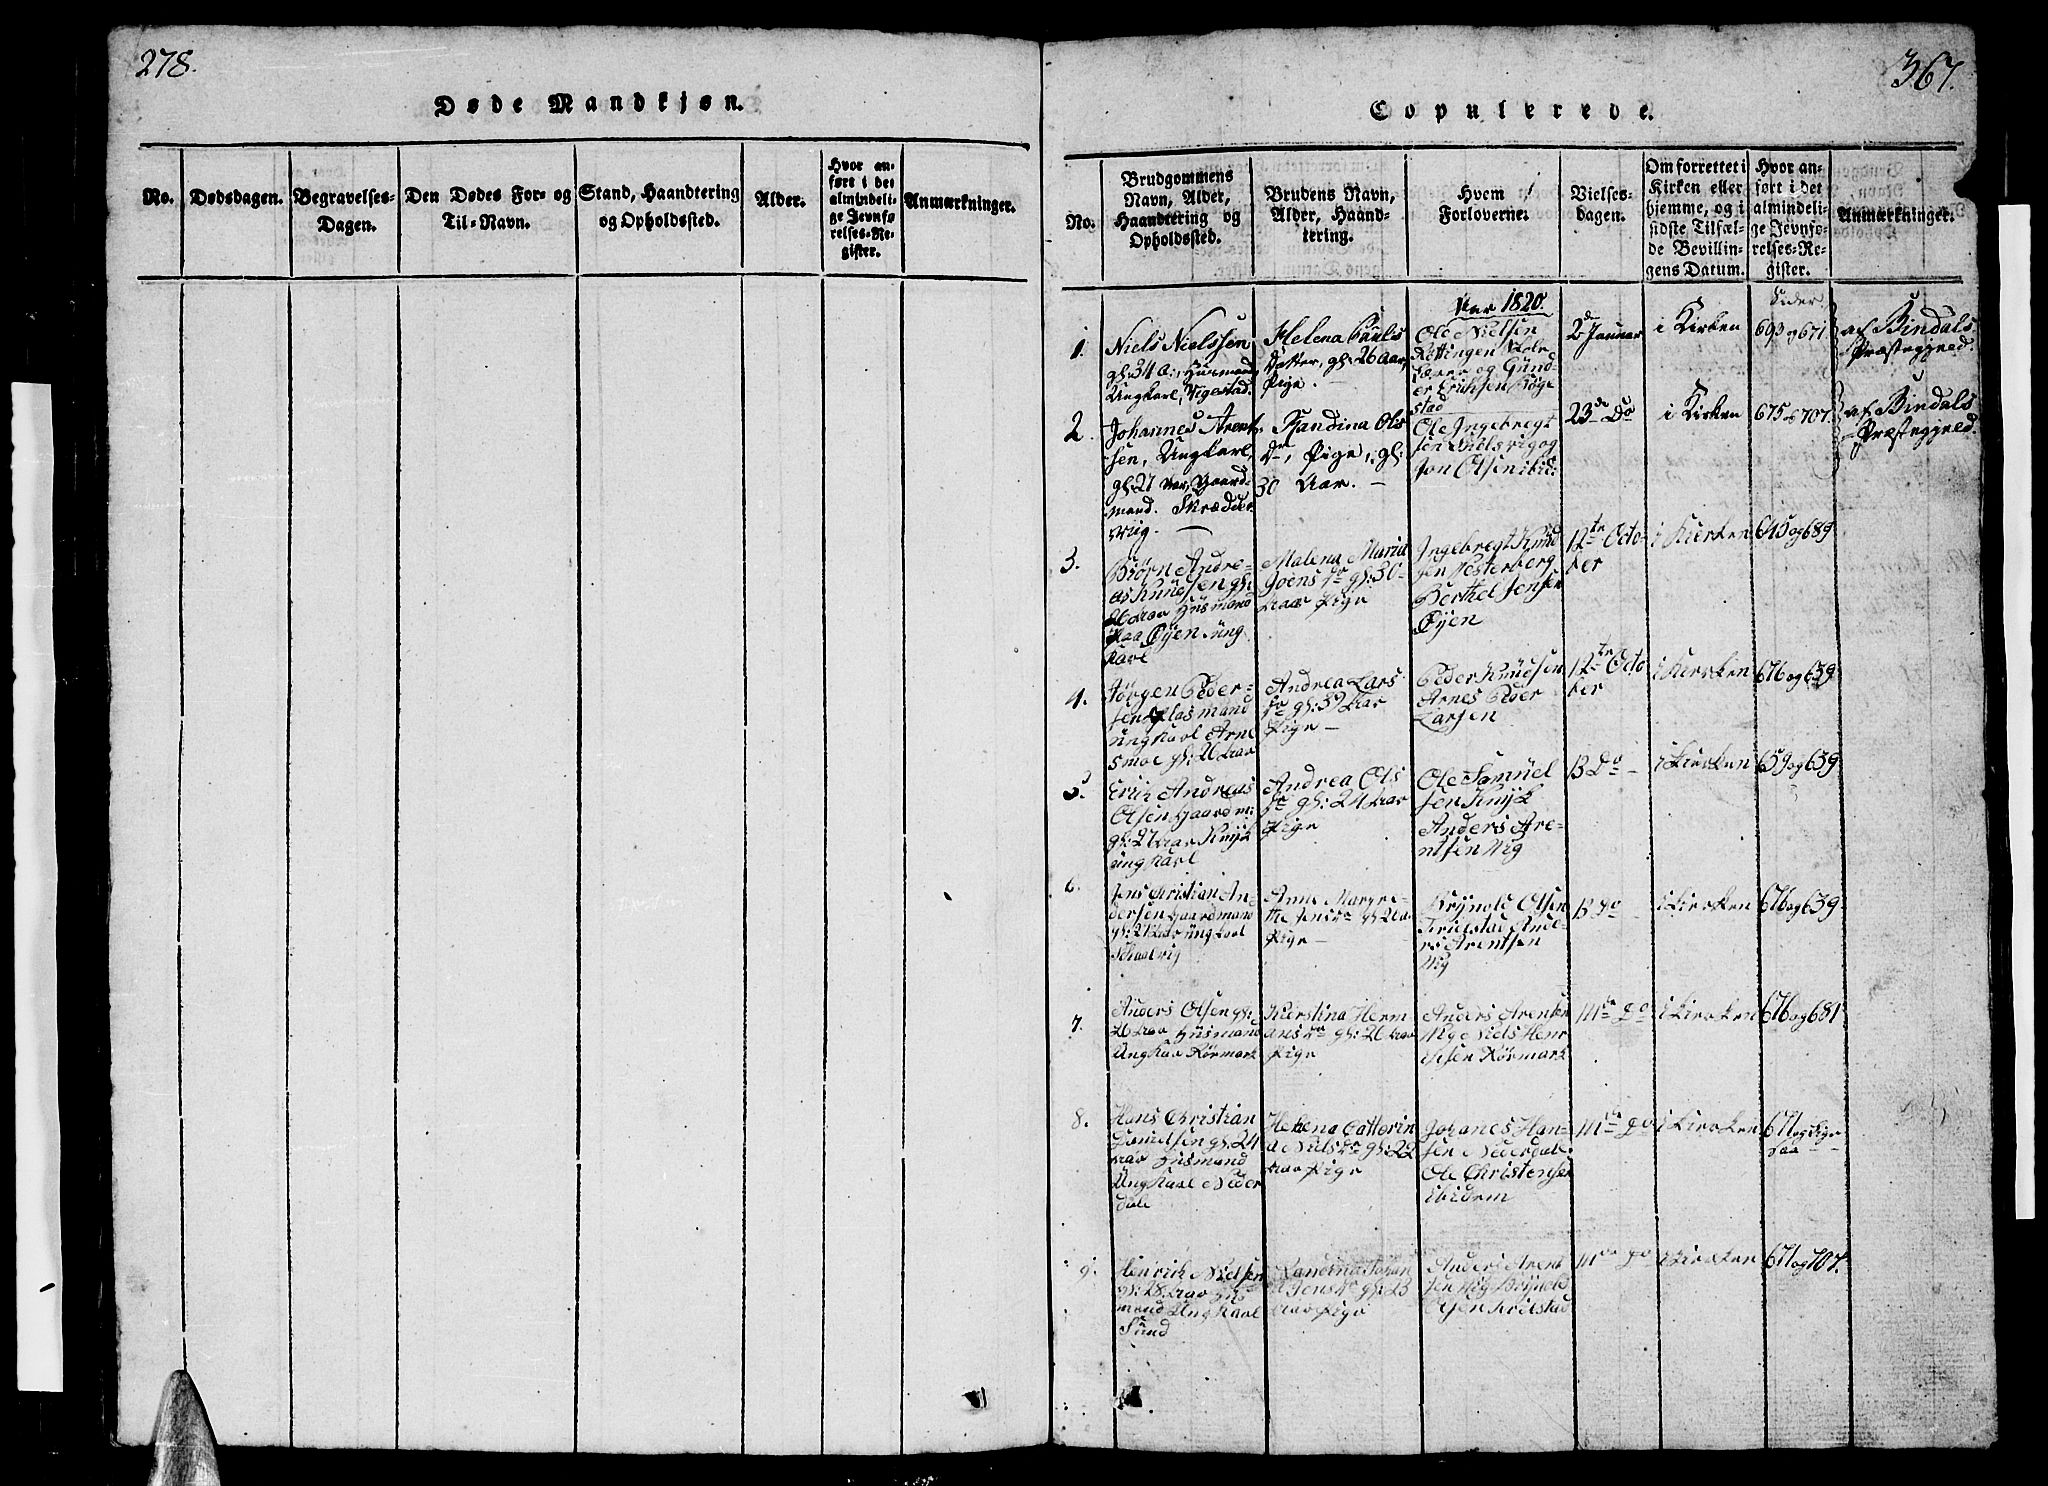 278.
Døde Mandkjøn.
No.
Dødsdagen.
Begravelses-
Dagen.
Den Dødes For- og
Til-Navn.
Stand, Haandtering
og Opholdssted.
Alder.
Hvor an-
ført i det
almindeli-
ge Jevnfø-
relses-Re-
gister.
Anmærkninger.
367.
Copulerede.
No.
Brudgommens
Navn, Alder,
Haandtering og
Opholdssted.
Brudens Navn,
Alder, Haand-
tering.
Hvem
Forloverne.
Vielses-
dagen.
Om forrettet i
Kirken eller
hjemme, og i
sidste Tilfæl-
de Bevillin-
gens Datum.
Hvor an-
ført i det
almindeli-
ge Jevnfø-
relses-Re-
gister.
Anmærkninger.
Aar 1820.
1.
Niels Nielssen
gl: 34 a:, Huusmand
Ungkarl, Vigestad.
Helena Pauls
Datter, gl: 26 Aar,
Pige. —
Ole Nielsen
og Gund-
er Erichsen Bøge
stad
2de Januar
i Kirken
Sider
693 og 671
af Bindals
Præstegjeld.
2.
Johannes Arent
sen, Ungkarl,
gl: 27 Aar, Gaard-
mand. Skrædder
vig. —
Randina Ols
Dr, Pige, gl:
30 Aar. —
Ole Ingebregt
sen og
Jon Olsen ibid:
23de Do
i Kirken
675 og 707.
af Bindals
Præstegjeld.
3.
Biørn Andre-
as Knudsen gl:
26 Aar Husmand
paa Øyen ung
karl
Malena Maria
Joens Dr gl: 30
Aar Pige
Ingebregt Knud
sen Vesterberg
Berthel Jensen
Øyen
12te Octo-
ber
i Kirken
645 og 689
4.
Jørgen Peder-
sen Plasmand
ungkarl Arne
smoe gl: 26 Aar
Andrea Lars
Dr gl: 39 Aar
Pige —
Peder Knudsen
Arnes Peder
Larsen
12te Octo
ber
i Kirken
676 og 639
5.
Erik Andreas
Olsen Gaardm:
gl: 27 Aar Knyk
ungkarl
Andrea Ols
Dr gl: 24 Aar
Pige
Ole Samuel
sen Knyk
Anders Are-
ntsen Vig
13 Do —
i Kirken
659 og 639
6.
Jens Christian An
dersen Gaardmand
gl: 21 Aar ungkarl
Skaalvig
Anne Margre-
the Jens Dr gl: 26 a
Pige —
Brynold Olsen
Trielstad Ande-
rs Arentsen
Vig
13 Do
i Kirken
676 og 639
7.
Anders Olsen gl:
26 Aar Husmand
Ungkar Kørmark
Kierstina Herm
ans Dr gl: 26 Aar
Pige
Anders Arentsen
Vig Niels Hen
riksen Kørmark
14de Do
i Kirken
676 og 681
8.
Hans Christian
Danielsen gl: 24
Aar Husmand
Ungkarl Neder
dale
Helena Catterin
a Niels Dr gl: 22
Aar Pige
Johanes Han-
sen Nederdale
Ole Christensen
ibidem
14de Do
i Kirken
671 og lige
saa —
9.
Henrik Nielsen
gl: 28 Aar Hus
mand Ungkarl
Sund
Randina Johan
a Jens Dr gl: 23
Aar Pige
Anders Arent
sen Vig Brynold
Olsen Trielstad
14de Do
i Kirken
671 og 707.